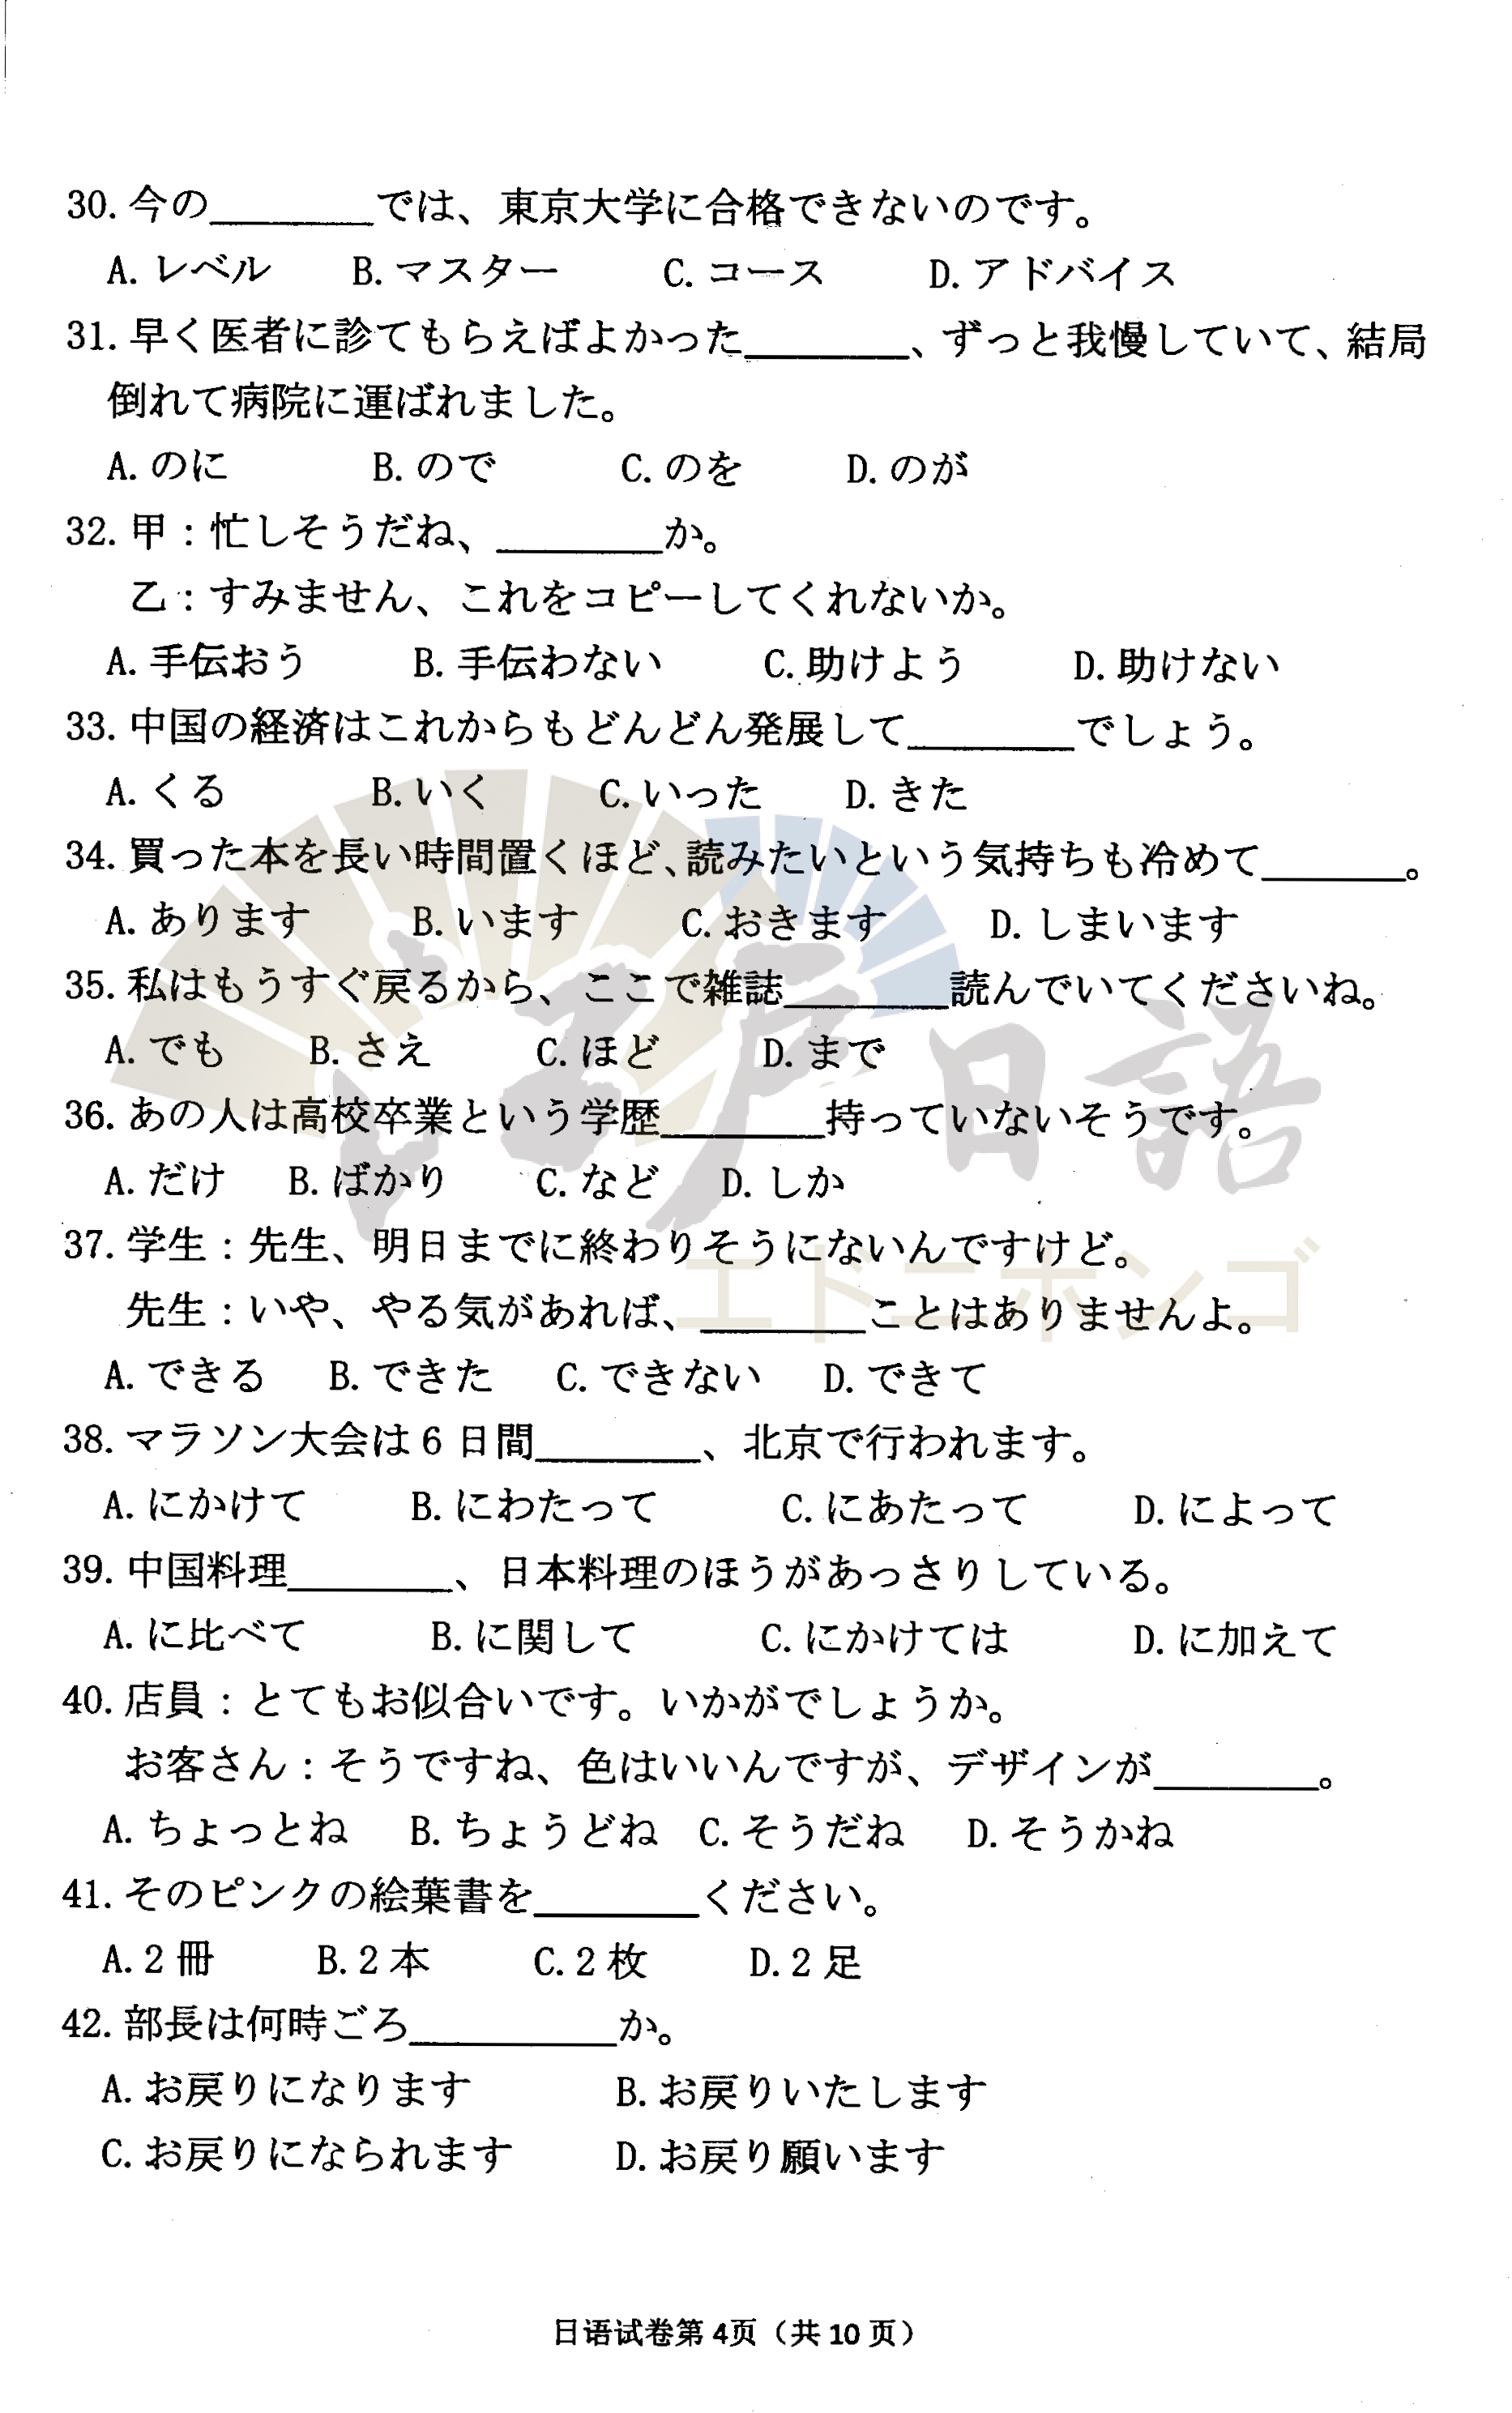 30. 今の________では、東京大学に合格できないのです。
A. レベル B. マスター C. コース D. アドバイス
31. 早く医者に診てもらえばよかった________、ずっと我慢していて、結局
倒れて病院に運ばれました。
A. のに B. ので C. のを D. のが
32. 甲：忙しそうだね、________か。
乙：すみません、これをコピーしてくれないか。
A. 手伝おう B. 手伝わない C. 助けよう D. 助けない
33. 中国の経済はこれからもどんどん発展して________でしょう。
A. くる B. いく C. いった D. きた
34. 買った本を長い時間置くほど、読みたいという気持ちも冷めて_______。
A. あります B. います C. おきます D. しまいます
35. 私はもうすぐ戻るから、ここで雑誌________読んでいてくださいね。
A. でも B. さえ C. ほど D. まで
36. あの人は高校卒業という学歴________持っていないそうです。
A. だけ B. ばかり C. など D. しか
37. 学生：先生、明日までに終わりそうにないんですけど。
先生：いや、やる気があれば、________ことはありませんよ。
A. できる B. できた C. できない D. できて
38. マラソン大会は 6 日間________、北京で行われます。
A. にかけて B. にわたって C. にあたって D. によって
39. 中国料理________、日本料理のほうがあっさりしている。
A. に比べて B. に関して C. にかけては D. に加えて
40. 店員：とてもお似合いです。いかがでしょうか。
お客さん：そうですね、色はいいんですが、デザインが________。
A. ちょっとね B. ちょうどね C. そうだね D. そうかね
41. そのピンクの絵葉書を________ください。
A. 2 冊 B. 2 本 C. 2 枚 D. 2 足
42. 部長は何時ごろ__________か。
A. お戻りになります B. お戻りいたします
C. お戻りになられます D. お戻り願います
江戸日語
エドニホンゴ
日语试卷第 4页（共 10 页）